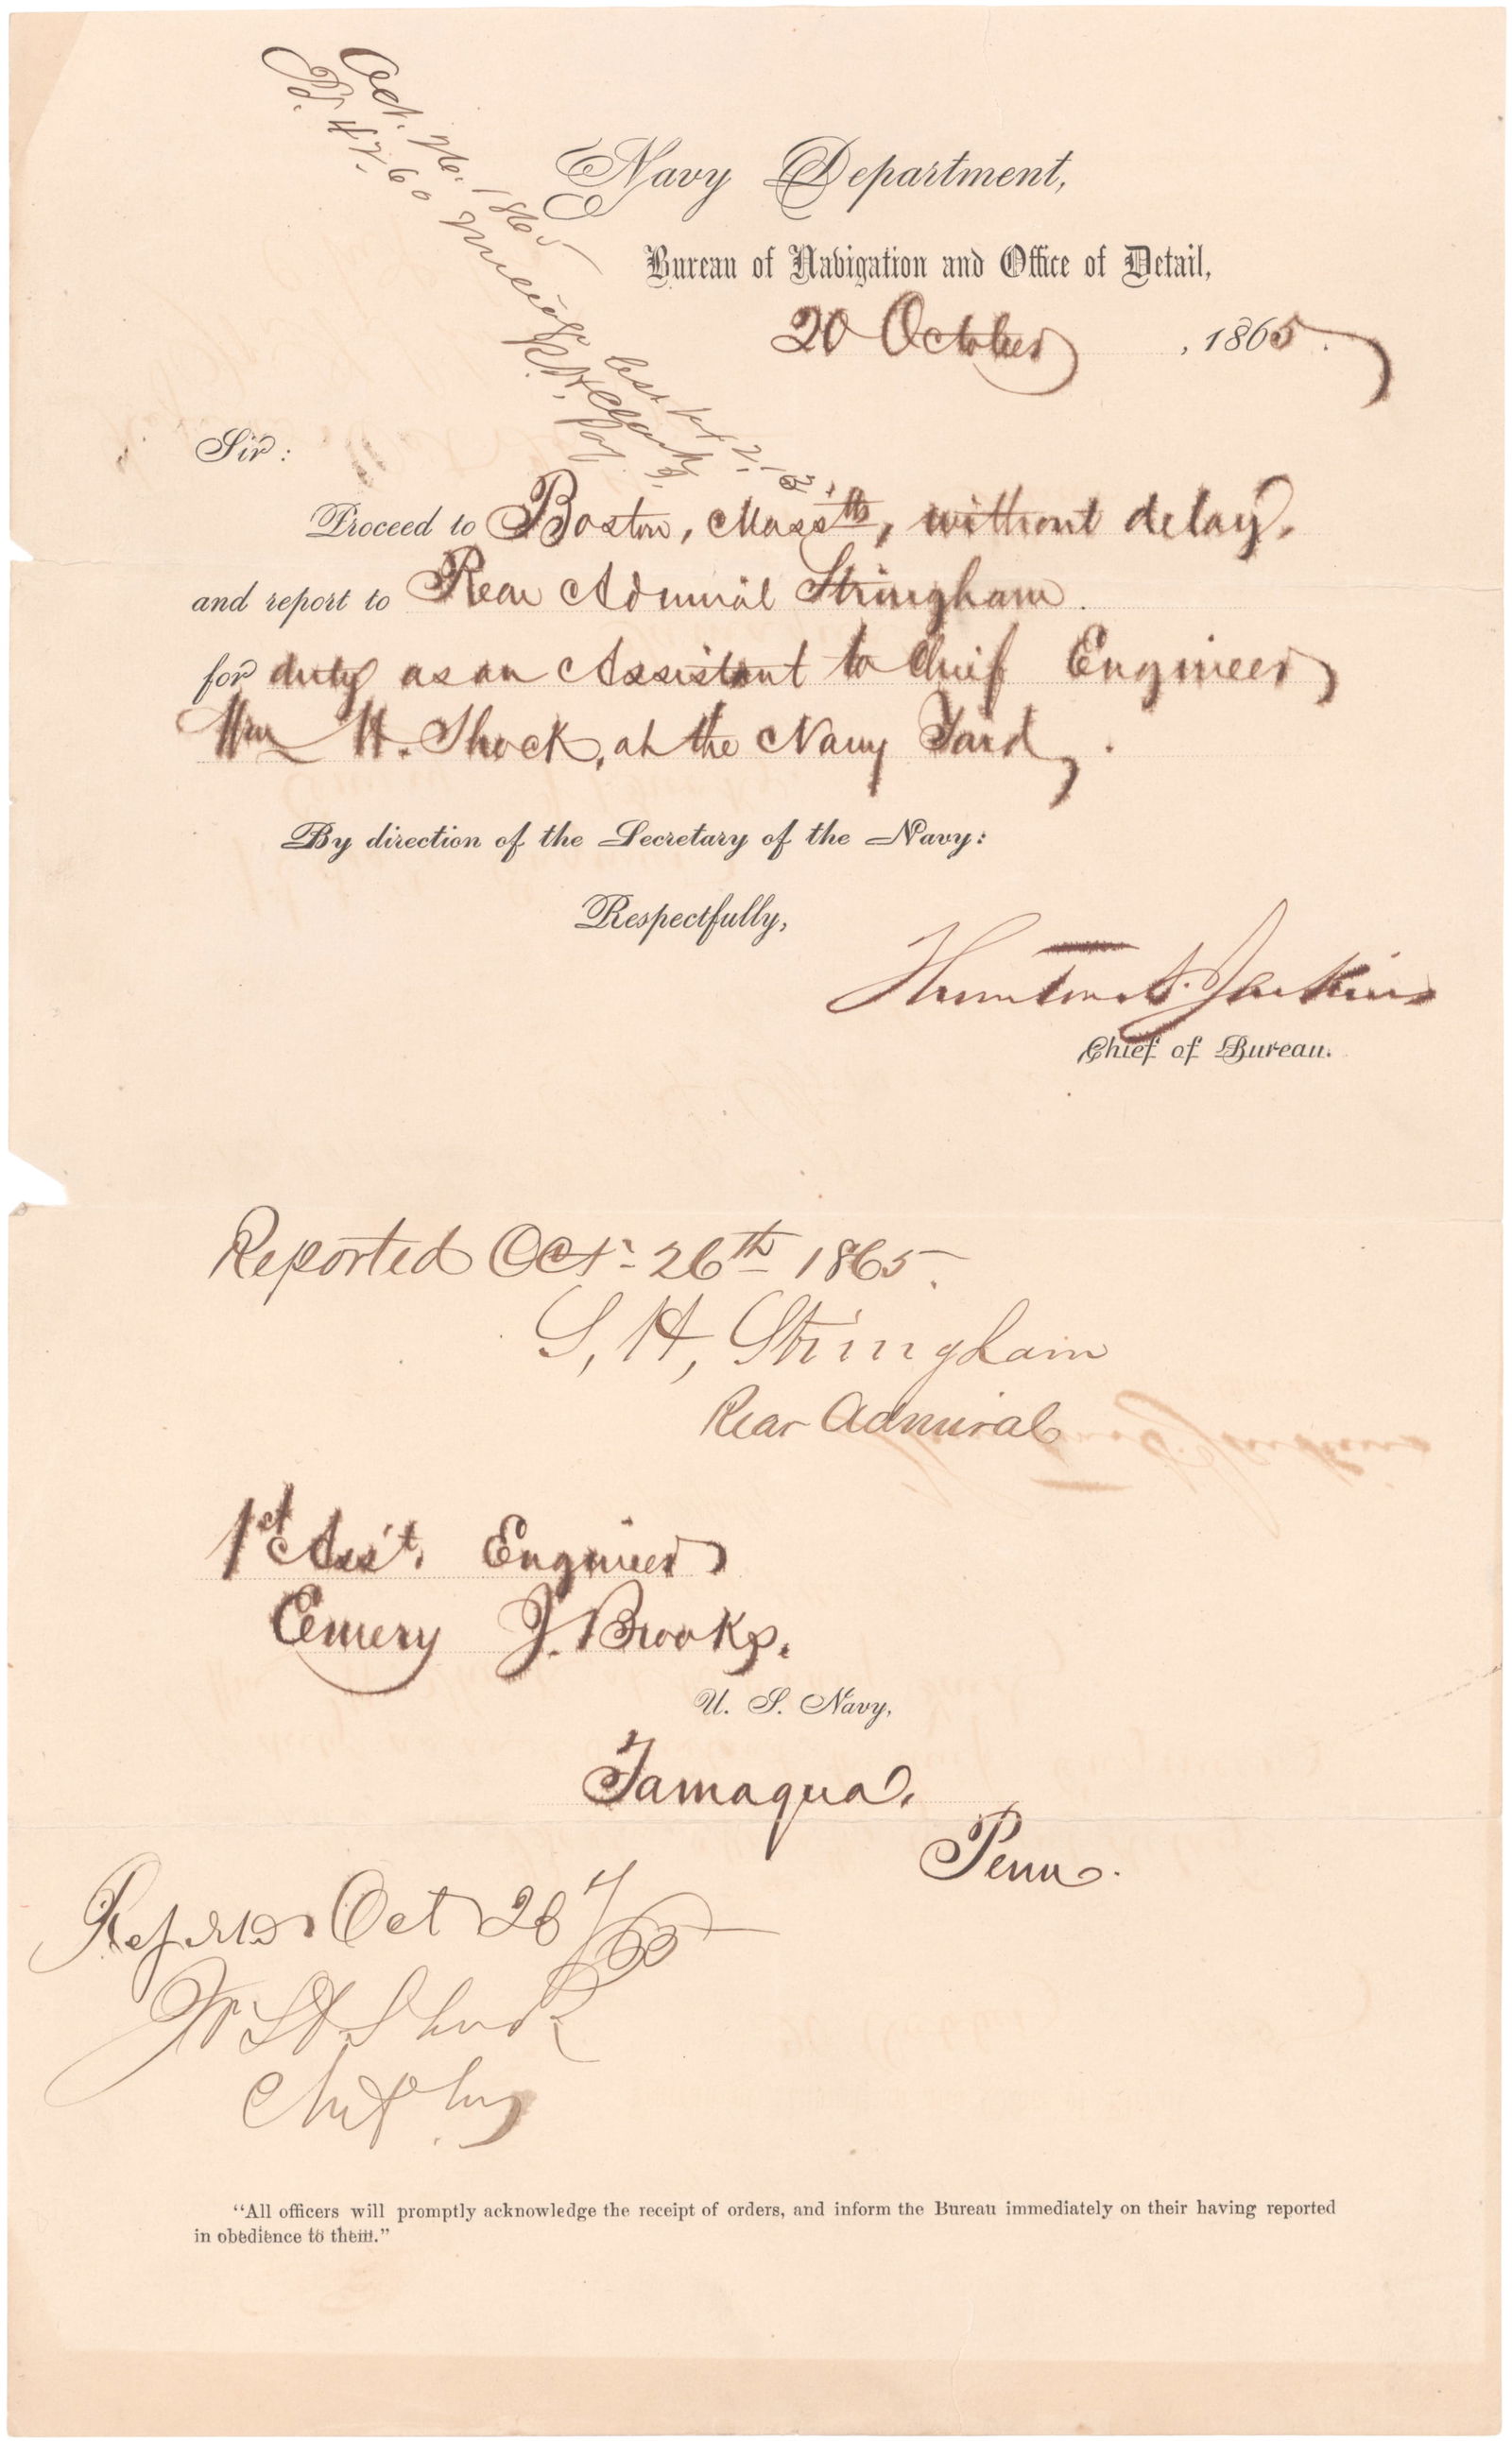 Oct. 26. 1865
Pd. 47.60 mileage
R. H. Clark
Pay
Navy Department,
Bureau of Navigation and Office of Detail,
20 October, 1865.
Sir:
Proceed to Boston, Mass'tts, without delay,
and report to Rear Admiral Stringham
for duty as an Assistant to Chief Engineer
Wm H. Shock, at the Navy Yard.
By direction of the Secretary of the Navy:
Respectfully,
Thornton A. Jenkins
Chief of Bureau.
Reported Oct. 26th 1865.
S. H. Stringham
Rear Admiral
1st Ass't. Engineer
Emery J. Brooks.
U. S. Navy,
Tamaqua.
Penn.
Reported Oct 26/65
W H Shock
Chf Eng
“All officers will promptly acknowledge the receipt of orders, and inform the Bureau immediately on their having reported
in obedience to them.”